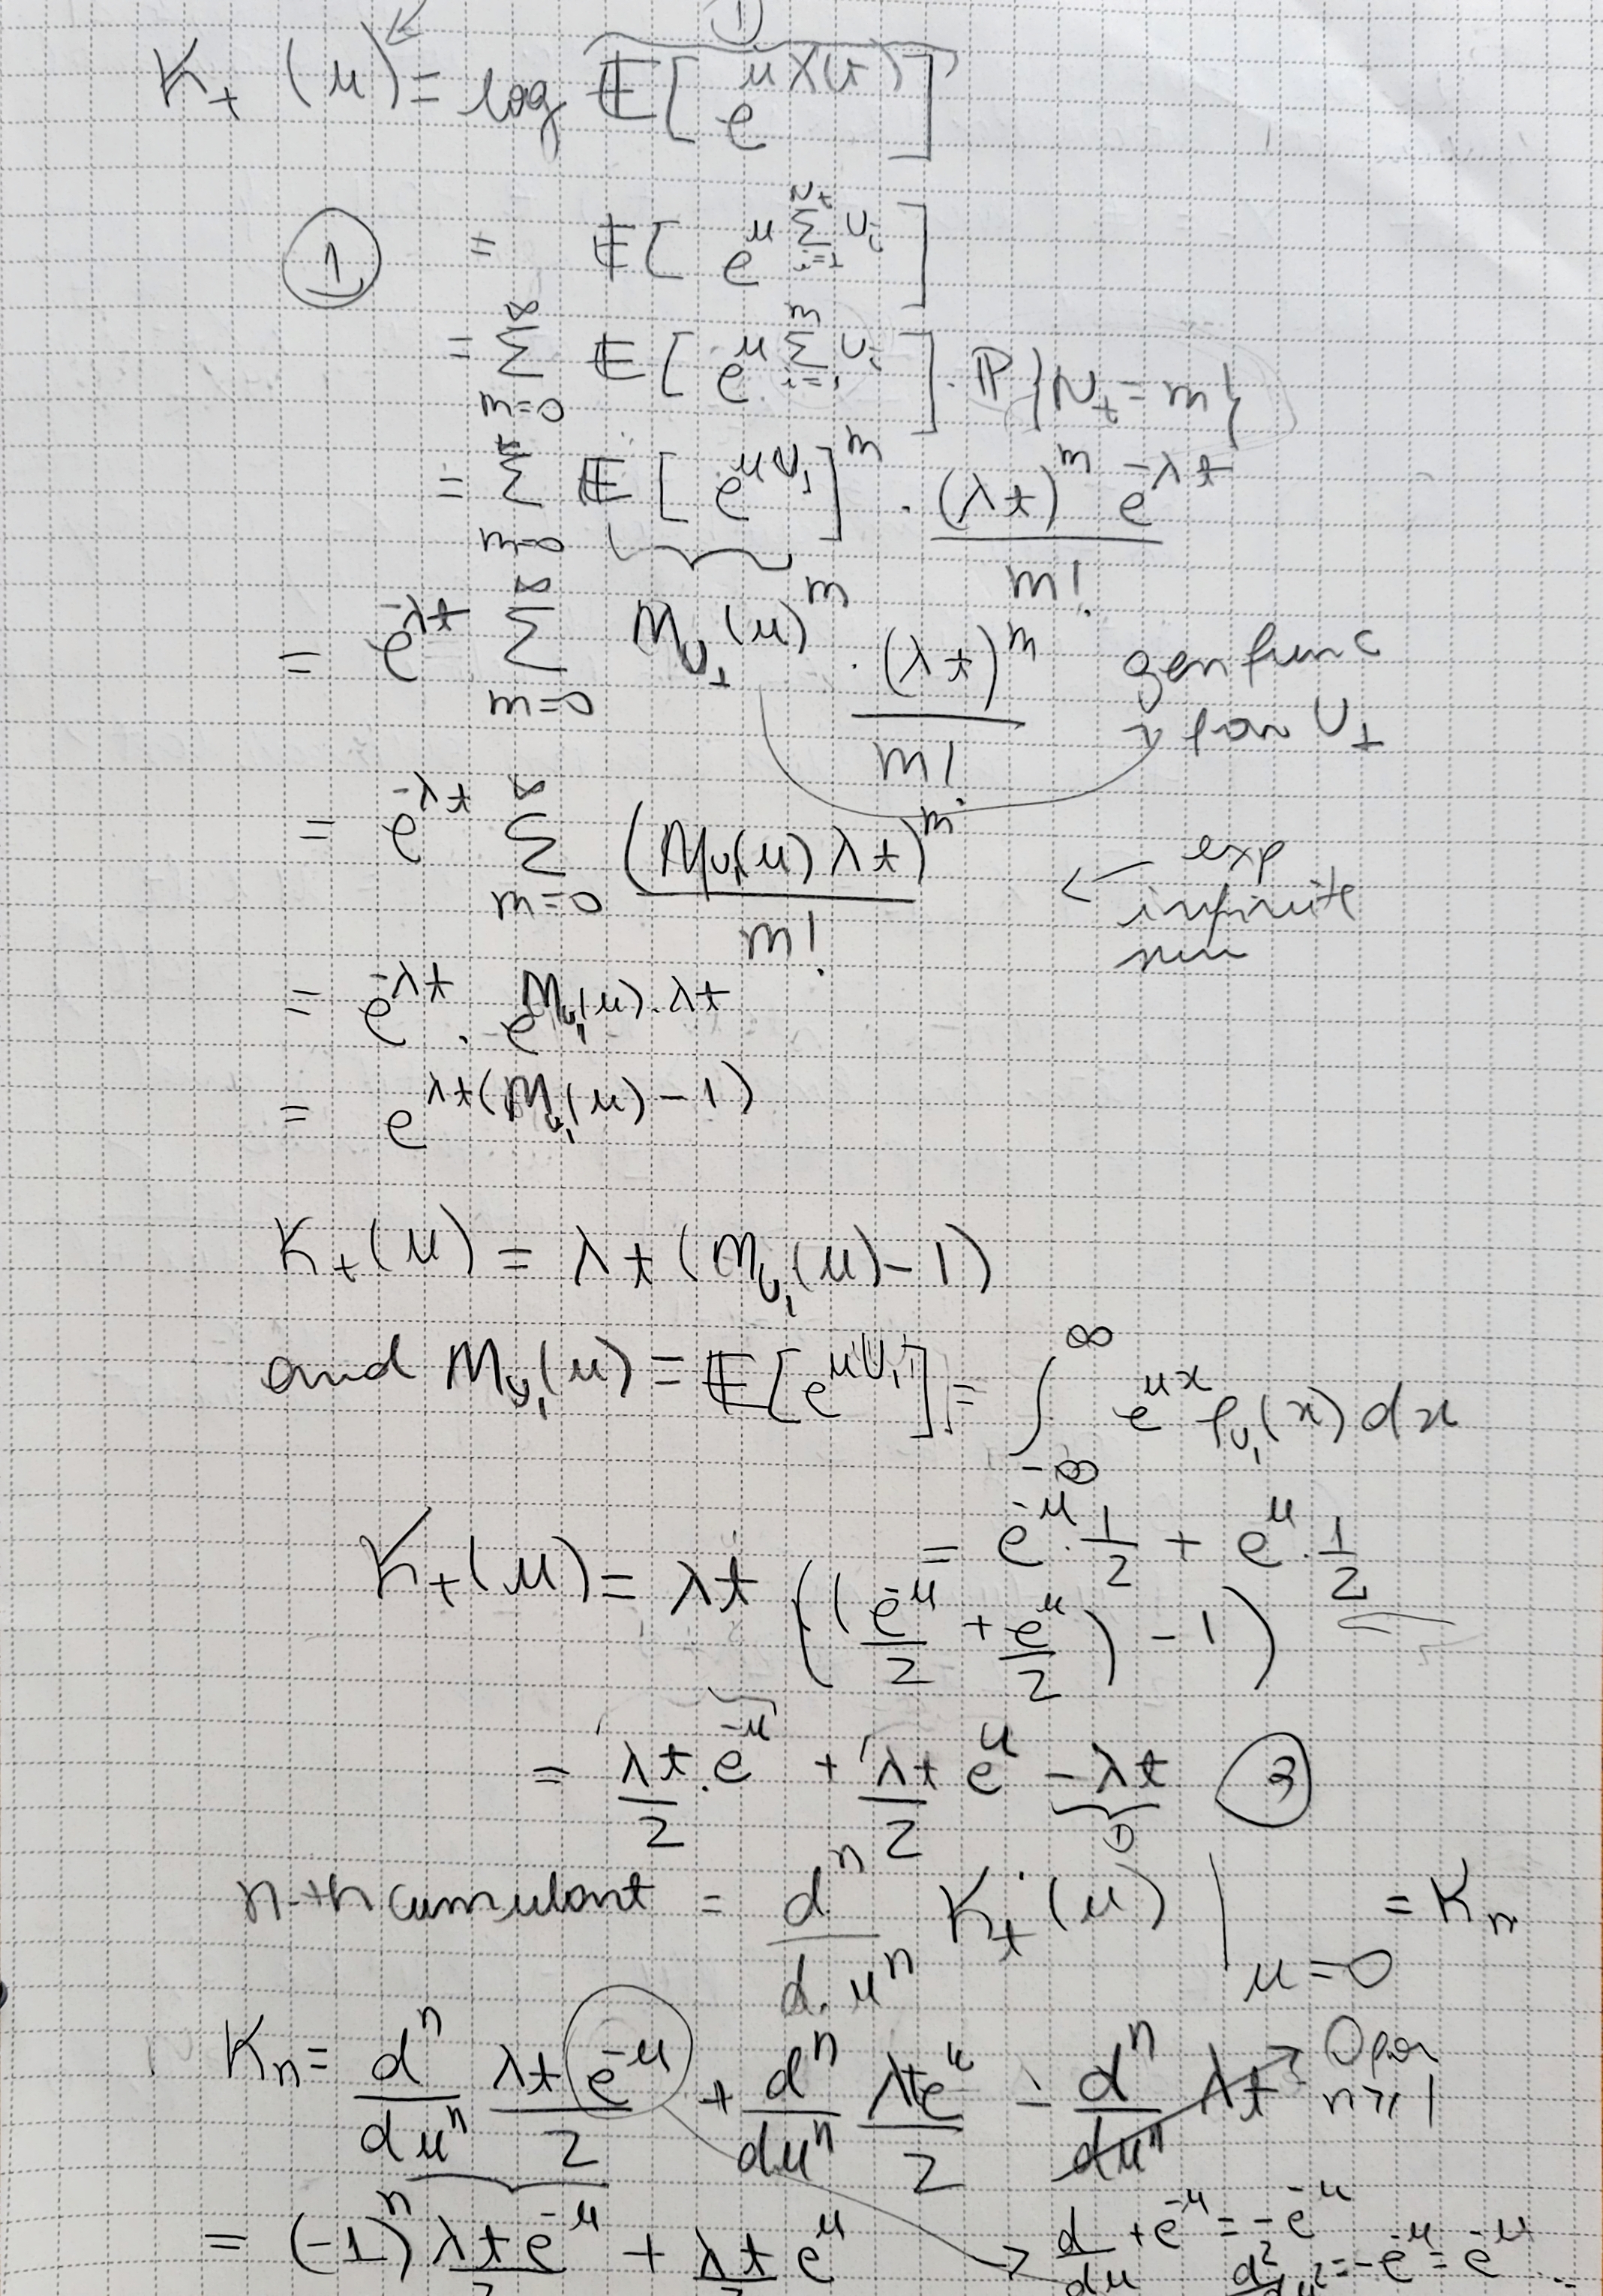 ①
K_t(u) = log E[e^{uX(t)}]
① = E[e^{u Σ_{i=1}^{N_t} U_i}]
= Σ_{m=0}^{∞} E[e^{u Σ_{i=1}^{m} U_i}] · P{N_t = m}
= Σ_{m=0}^{∞} E[e^{uU_1}]^m · (λt)^m e^{-λt} / m!
= e^{-λt} Σ_{m=0}^{∞} M_{U_1}(u)^m · (λt)^m / m!
gen func
for U_1
= e^{-λt} Σ_{m=0}^{∞} (M_{U_1}(u) λt)^m / m!
← exp
infinite
sum
= e^{-λt} · e^{M_{U_1}(u)·λt}
= e^{λt(M_{U_1}(u) - 1)}
K_t(u) = λt (M_{U_1}(u) - 1)
and M_{U_1}(u) = E[e^{uU_1}] = ∫_{-∞}^{∞} e^{ux} f_{U_1}(x) dx
= e^{-u}·1/2 + e^{u}·1/2
K_t(u) = λt ((e^{-u}/2 + e^{u}/2) - 1)
= λt/2 · e^{-u} + λt/2 e^{u} - λt
n-th cumulant = d^n/d.u^n K_t(u) |_{u=0} = K_n
K_n = d^n/du^n λt e^{-u}/2 + d^n/du^n λte^{u}/2 - d^n/du^n λt → 0 for
n ≥ 1
= (-1)^n λt e^{-u}/2 + λt/2 e^{u}
→ d/du + e^{-u} = -e^{-u}
d²/du² = --e^{-u} = e^{-u} ...